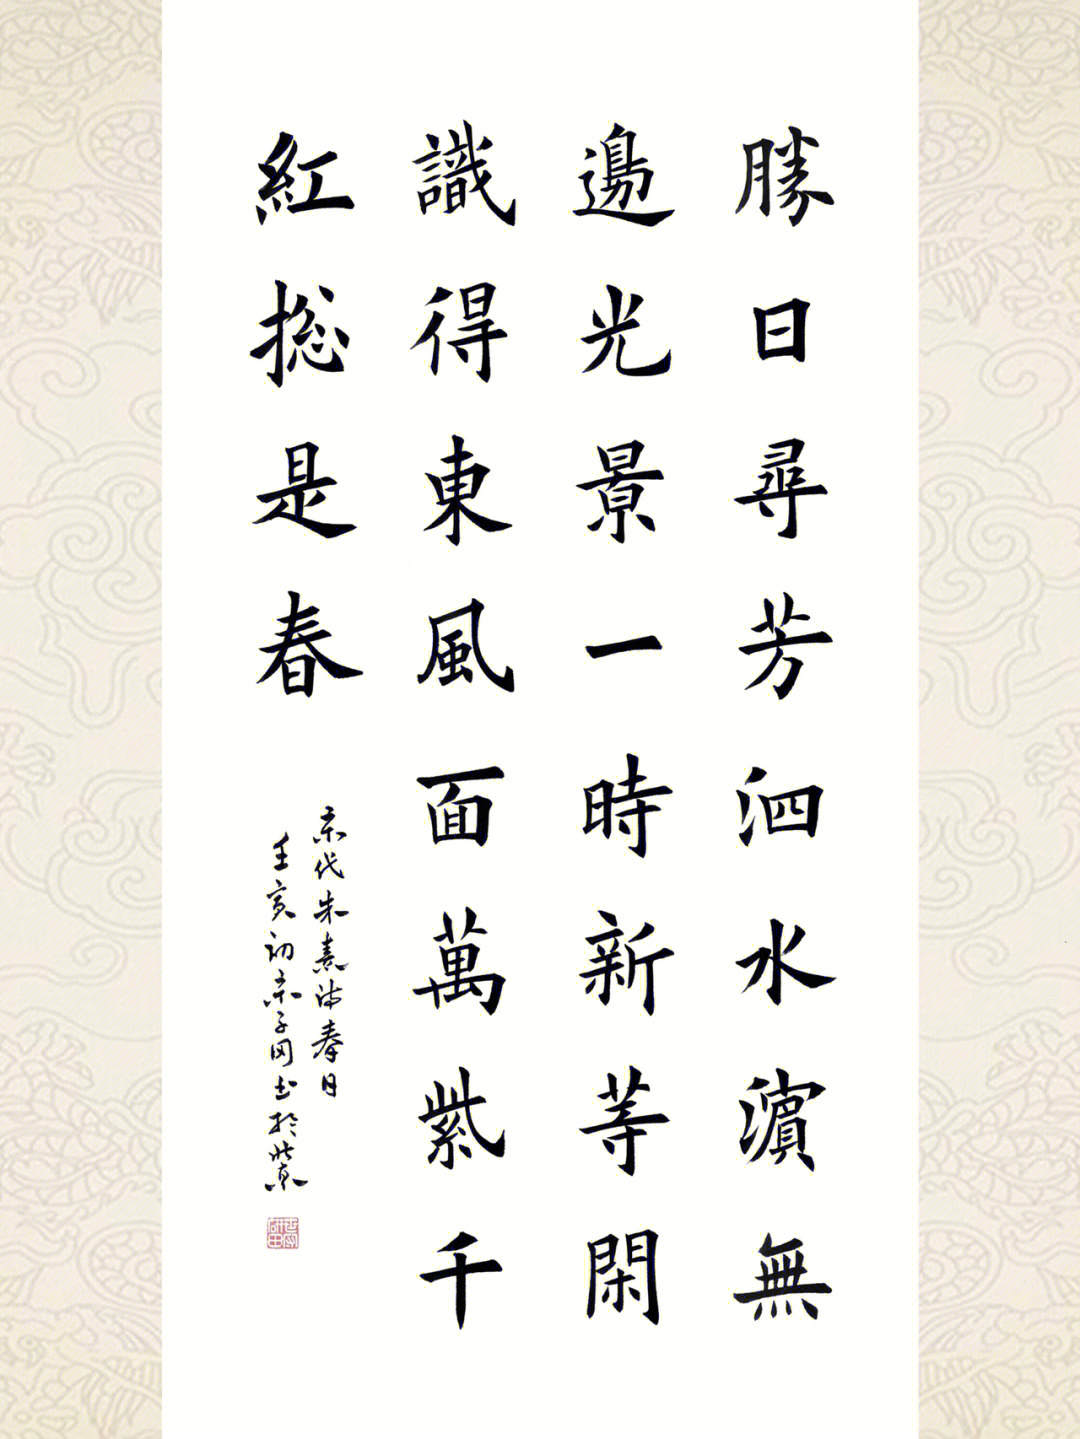 勝日尋芳泗水濵無
邊光景一時新等閑
識得東風面萬紫千
紅捴是春
宋代朱熹诗春日
壬亥初宗子冈书於北京